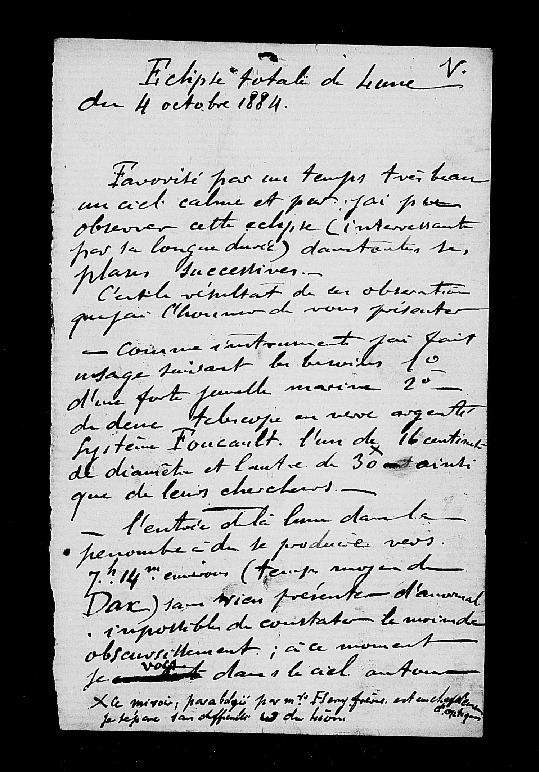 V.
Eclipse totale de Lune
du 4 octobre 1884.
Favorisé par un temps très beau
un ciel calme et pur, j'ai pu
observer cette eclipse (interressante
par sa longue durée) dans toutes ses
phases successives. —
C'est le résultat de ces observations
que j'ai l'honneur de vous présenter
— Comme instrument j'ai fait
usage suivant les besoins 1o
d'une forte jumelle marine 2o —
de deux telescope en verre argenté
Système Foucault. l'un de 16 centimèt
de diamètre et l'autre de 30 x ainsi
que de leurs chercheurs. —
— l'entrée de la lune dans la
penombre a du se produire vers
7h 14m environs (temps moyen de
Dax) sans rien présenter d'anormal
impossible de constater le moindre
obscursissement ; à ce moment
je vois dans le ciel autour
X Ce miroir, parabolisé par mrs Henry frères. est
je sépare sans difficulté du